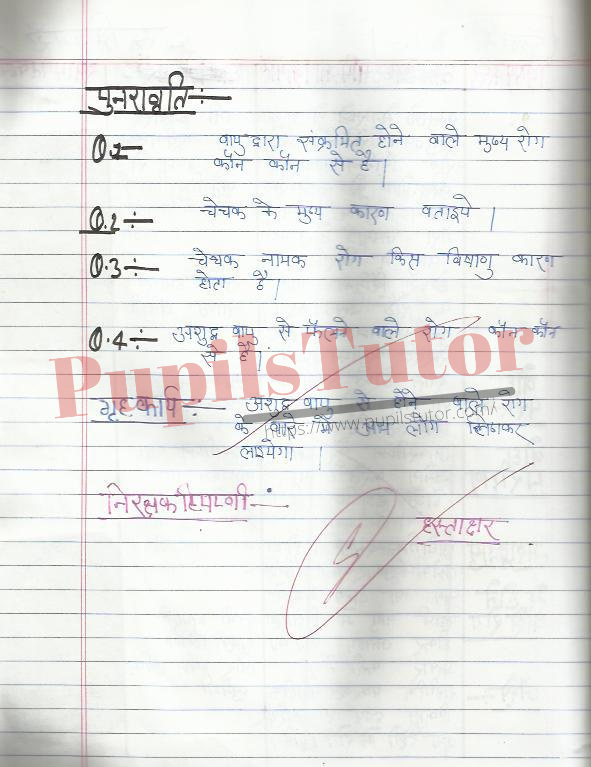 पुनरावृति :-
Q.1 वायु द्वारा संक्रमित होने वाले मुख्य रोग
कौन कौन से है।
Q.2 :- चेचक के मुख्य कारण बताइये।
Q.3 :- चेचक नामक रोग किस विषाणु कारण
होता है।
Q.4 :- अशुद्ध वायु से फैलने वाले रोग कौन कौन
से है।
PupilsTutor
गृहकार्य :- अशुद्ध वायु से होने वाले रोग
https://www.pupilstutor.com/
के बारे में आप लोग लिखकर
लाइयेगा।
निरक्षक टिप्पणी :-
हस्ताक्षर